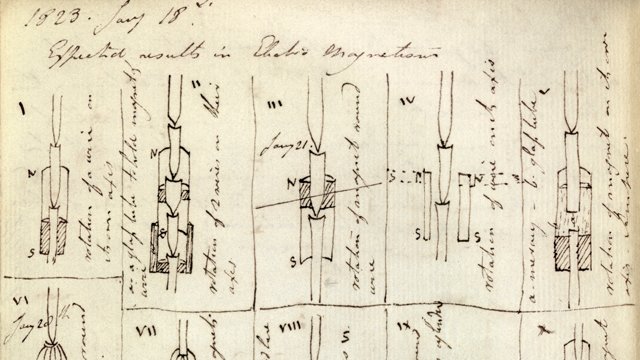 1823. Jany 18th.
Expected results in Electro Magnetism
I
N
S
rotation of a wire on
its own axis
II
a a glass tube to hold magnets
wire
rotation of 2 wires on their
axis
III
Jany 21.
N
S
rotation of magnet round
wire
IV
S
N
S
S
rotation of wire on its axis
a. mercury - b. glass tube
rotation of magnet on its own
axis
VI
Jany 20th
round
VII
VIII
S.
IX
X